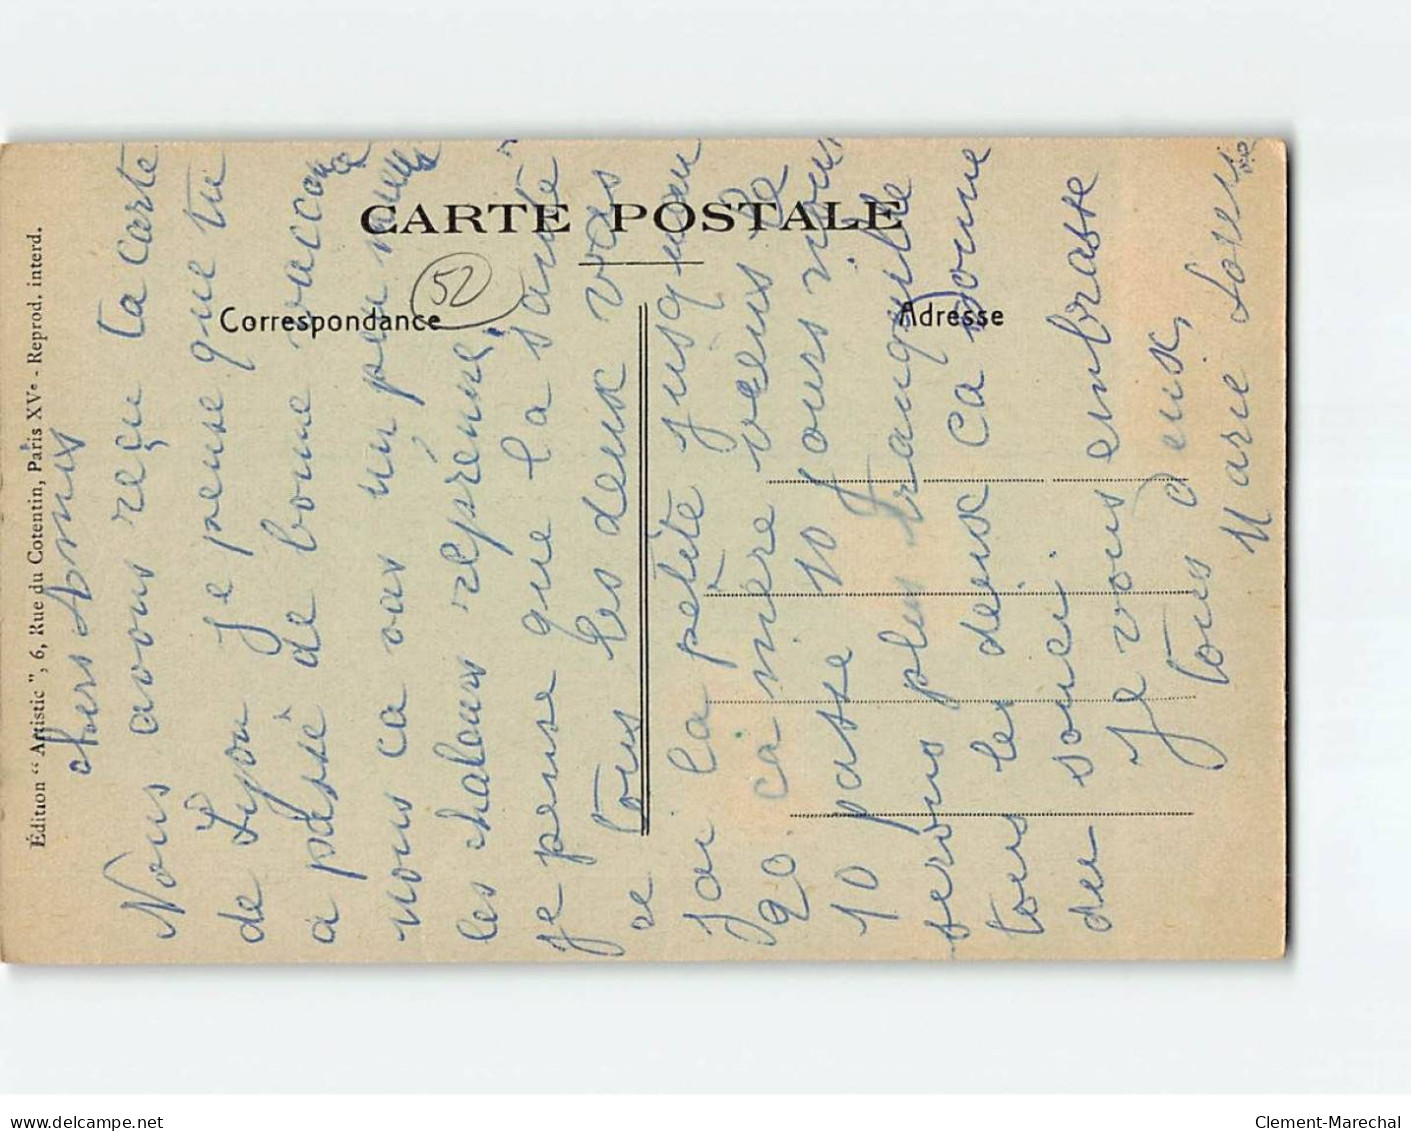 CARTE POSTALE
Correspondance
Adresse
52
Édition “ Artistic ”, 6, Rue du Cotentin, Paris XVe - Reprod. interd.
chers Amis
Nous avons reçu ta carte
de Lyon Je pense que tu
a passé de bonne vaccance
nous ca vas un peu mieux
les chaleurs reprenne,
je pense que la santé
se tous les deux vous
jai la petète jusqu'au
20 ca mère veins le
10 passe 10 jours nous
serons plus tranquille
tous les deux ca donne
du souci.
Je vous embrasse
tous deux,
Marie Louise
delcampe.net
Clement-Marechal